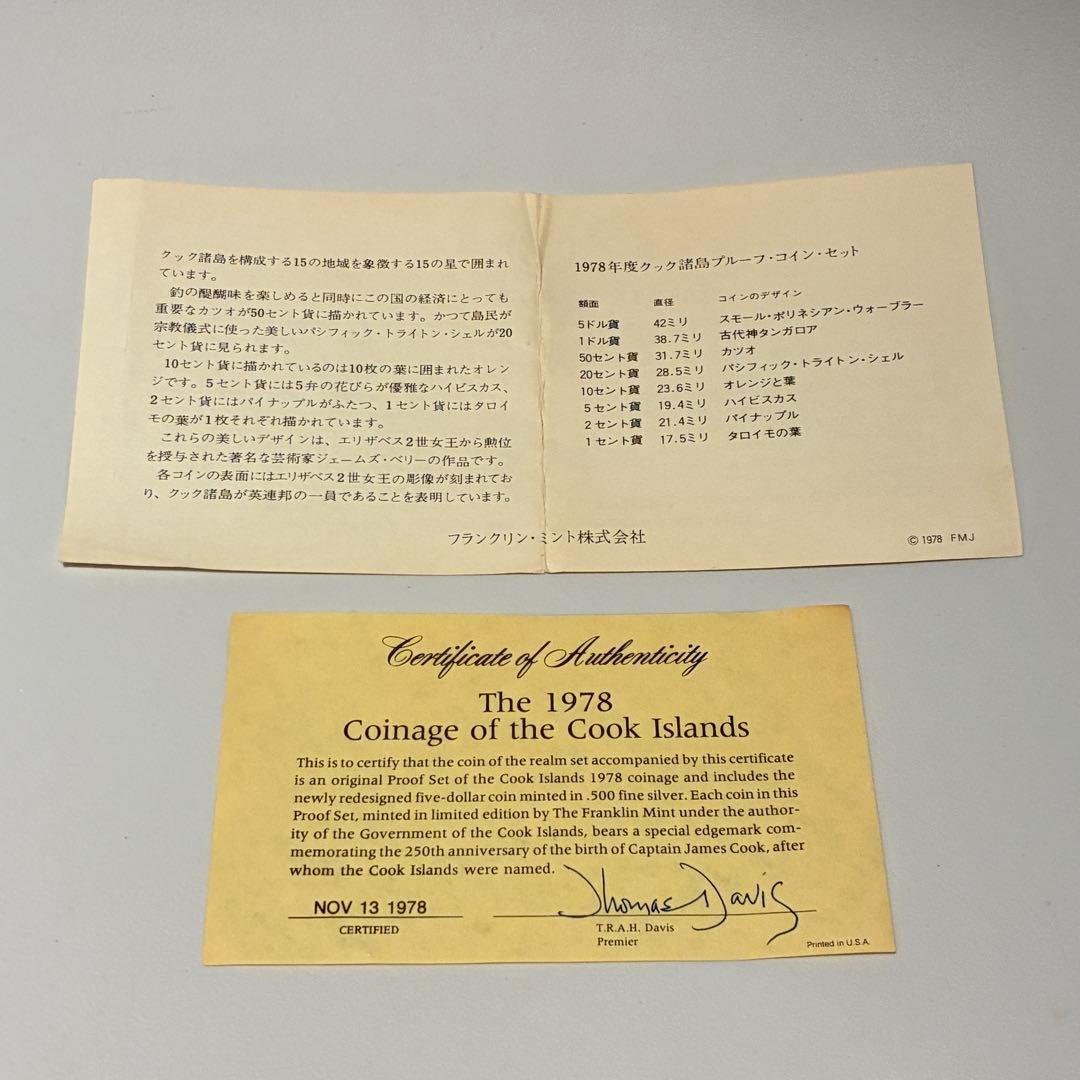 クック諸島を構成する15の地域を象徴する15の星で囲まれ
ています。
釣の醍醐味を楽しめると同時にこの国の経済にとっても
重要なカツオが50セント貨に描かれています。かつて島民が
宗教儀式に使った美しいパシフィック・トライトン・シェルが20
セント貨に見られます。
10セント貨に描かれているのは10枚の葉に囲まれたオレン
ジです。5セント貨には5弁の花びらが優雅なハイビスカス、
2セント貨にはパイナップルがふたつ、1セント貨にはタロイ
モの葉が1枚それぞれ描かれています。
これらの美しいデザインは、エリザベス2世女王から勲位
を授与された著名な芸術家ジェームズ・ベリーの作品です。
各コインの表面にはエリザベス2世女王の彫像が刻まれてお
り、クック諸島が英連邦の一員であることを表明しています。
1978年度クック諸島プルーフ・コイン・セット
額面 直径 コインのデザイン
5ドル貨 42ミリ スモール・ポリネシアン・ウォーブラー
1ドル貨 38.7ミリ 古代神タンガロア
50セント貨 31.7ミリ カツオ
20セント貨 28.5ミリ パシフィック・トライトン・シェル
10セント貨 23.6ミリ オレンジと葉
5セント貨 19.4ミリ ハイビスカス
2セント貨 21.4ミリ パイナップル
1セント貨 17.5ミリ タロイモの葉
フランクリン・ミント株式会社
© 1978 FMJ
Certificate of Authenticity
The 1978
Coinage of the Cook Islands
This is to certify that the coin of the realm set accompanied by this certificate
is an original Proof Set of the Cook Islands 1978 coinage and includes the
newly redesigned five-dollar coin minted in .500 fine silver. Each coin in this
Proof Set, minted in limited edition by The Franklin Mint under the author-
ity of the Government of the Cook Islands, bears a special edgemark com-
memorating the 250th anniversary of the birth of Captain James Cook, after
whom the Cook Islands were named.
Thomas Davis
NOV 13 1978
CERTIFIED
T.R.A.H. Davis
Premier
Printed in U.S.A.